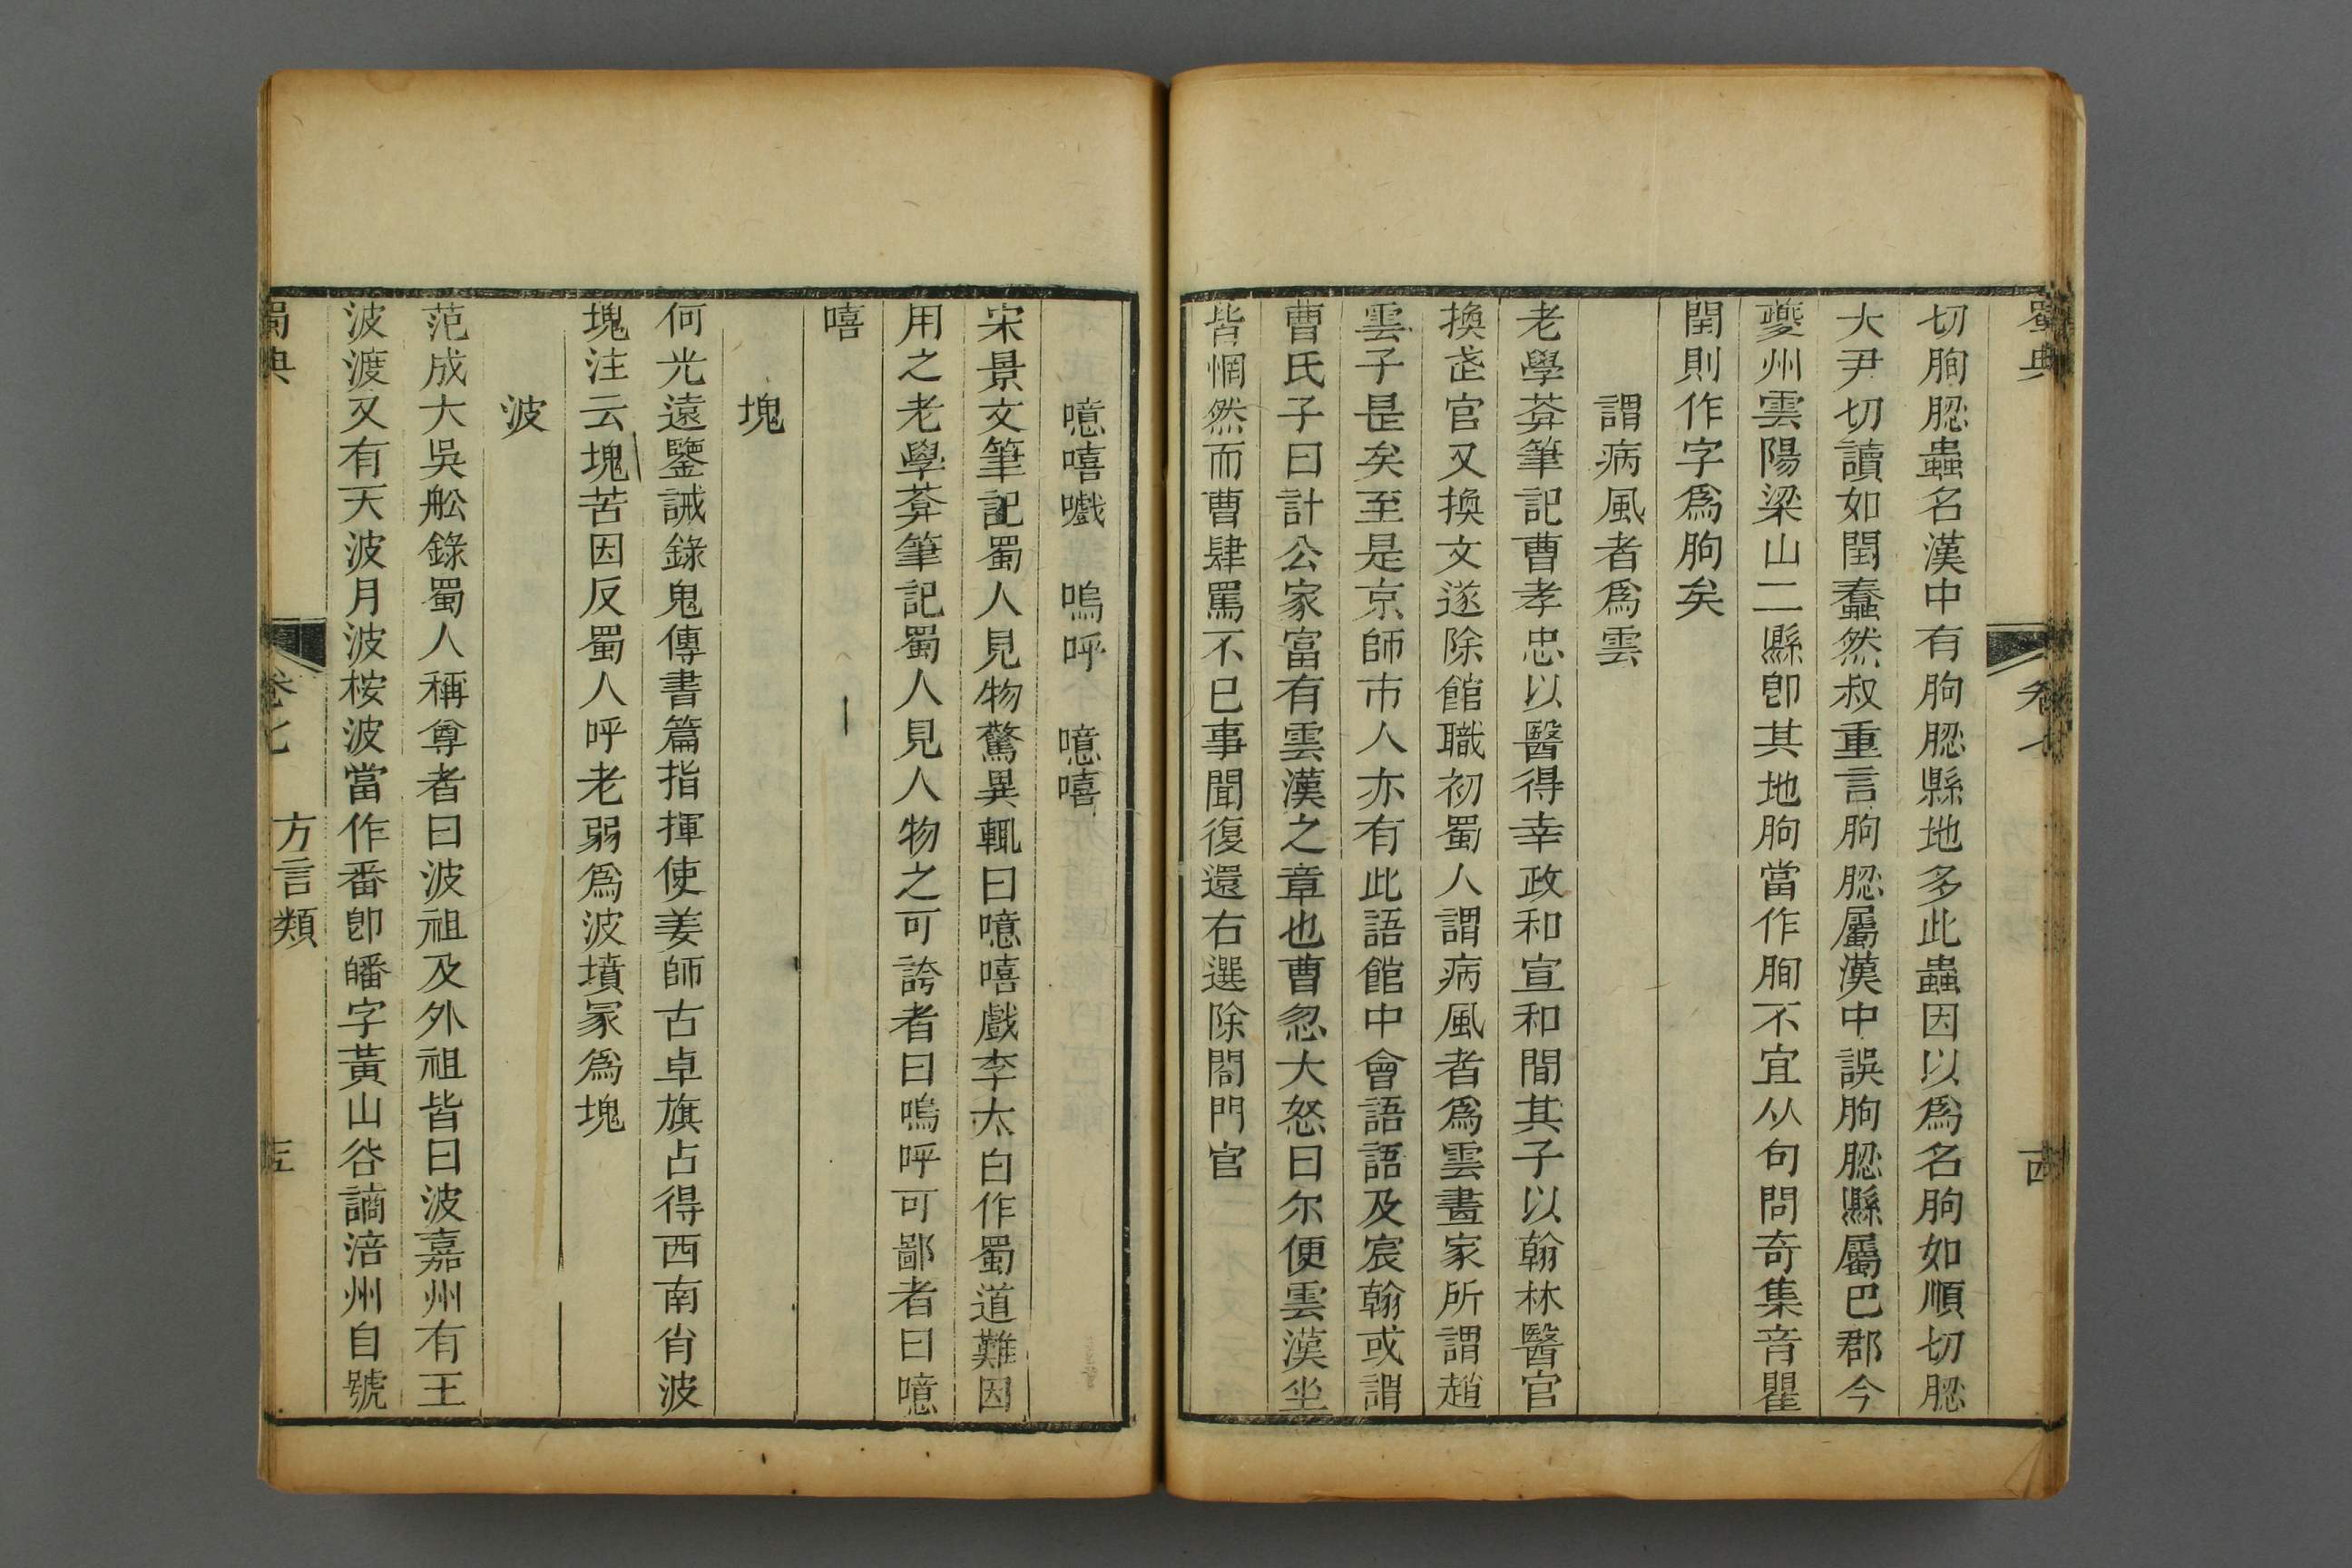 蜀典 卷七 古
切朐䏰蟲名漢中有朐䏰縣地多此蟲因以爲名朐如順切䏰
大尹切讀如閏蠢然叔重言朐䏰屬漢中誤朐䏰縣屬巴郡今
夔州雲陽梁山二縣卽其地朐當作䐃不宜从句問奇集音瞿
閏則作字爲朐矣
謂病風者爲雲
老學葊筆記曹孝忠以醫得幸政和宣和間其子以翰林醫官
換武官又換文遂除館職初蜀人謂病風者爲雲畫家所謂趙
雲子是矣至是京師市人亦有此語館中會語語及宸翰或謂
曹氏子曰計公家富有雲漢之章也曹忽大怒曰尔便雲漢坐
皆惘然而曹肆罵不已事聞復還右選除閤門官
噫嘻嚱 嗚呼 噫嘻
宋景文筆記蜀人見物驚異輒曰噫嘻戲李太白作蜀道難因
用之老學葊筆記蜀人見人物之可誇者曰嗚呼可鄙者曰噫
嘻
塊
何光遠鑒誡錄鬼傳書篇指揮使姜師古卓旗占得西南肖波
塊注云塊苦因反蜀人呼老弱爲波墳冢爲塊
波
范成大吳船錄蜀人稱尊者曰波祖及外祖皆曰波嘉州有王
波渡又有天波月波桉波當作番卽皤字黃山谷謫涪州自號
蜀典 卷七 方言類